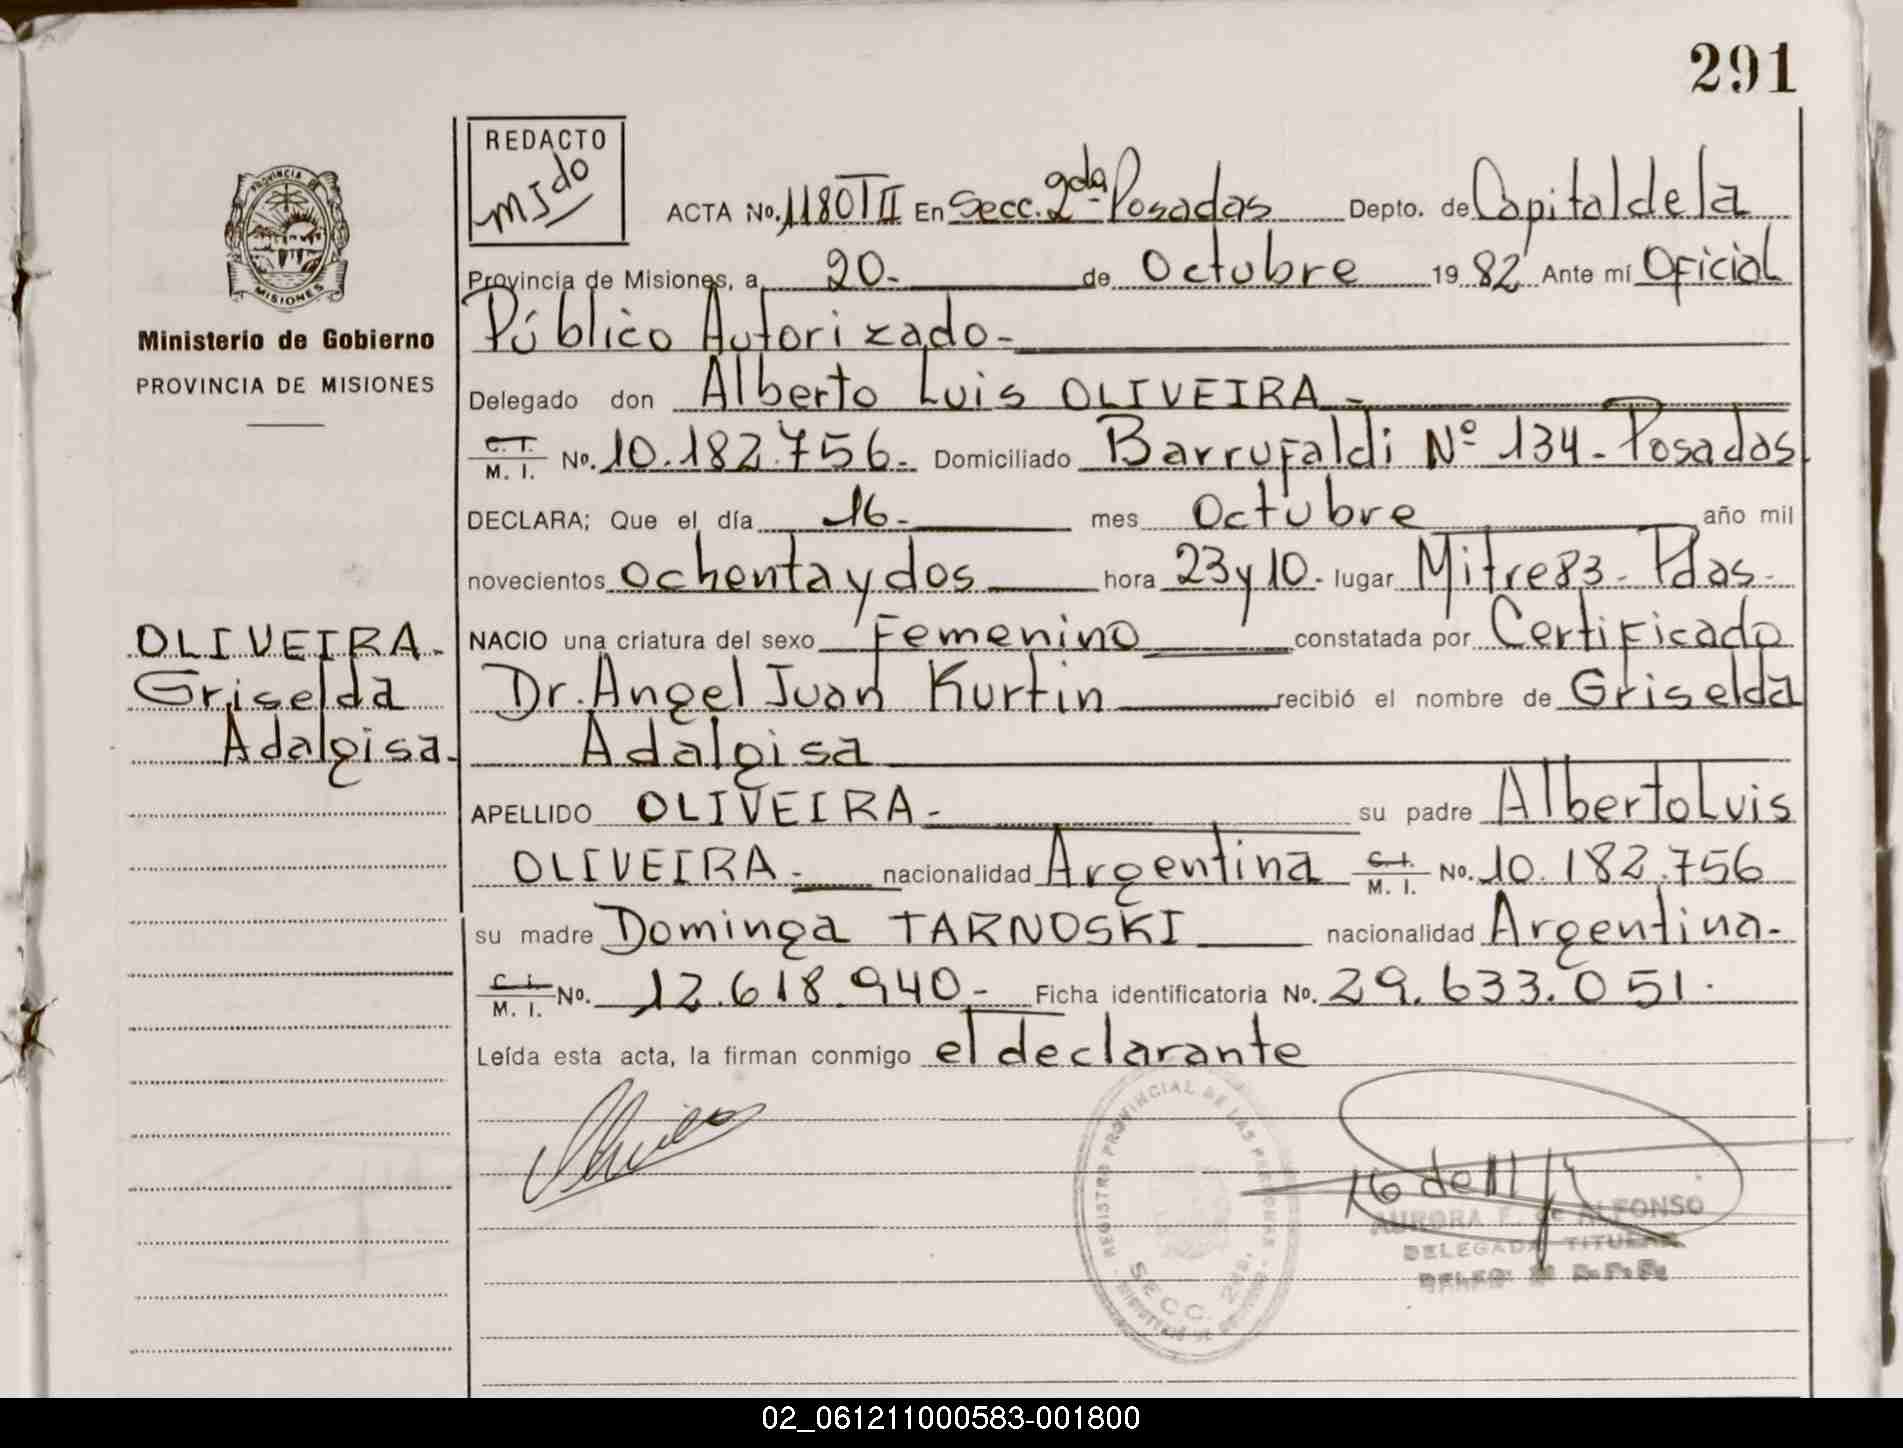 291
REDACTO
PROVINCIA DE
MISIONES
Ministerio de Gobierno
PROVINCIA DE MISIONES
ACTA No. 1180 T II En Secc. 2da- Posadas Depto. de Capital de la
Provincia de Misiones, a 20.- de Octubre 1982 Ante mí Oficial
Público Autorizado-
Delegado don Alberto Luis OLIVEIRA.-
C. I. M. I. No. 10.182.756.- Domiciliado Barrufaldi Nº 134- Posadas
DECLARA; Que el día 16.- mes Octubre año mil
novecientos ochenta y dos hora 23 y 10.- lugar Mitre 83- Pdas-
NACIO una criatura del sexo Femenino constatada por Certificado
Dr. Angel Juan Kurtin recibió el nombre de Griselda
Adalgisa
APELLIDO OLIVEIRA- su padre Alberto Luis
OLIVEIRA.- nacionalidad Argentina C. I. M. I. No. 10.182.756
su madre Dominga TARNOSKI nacionalidad Argentina-
C. I. M. I. No. 12.618.940- Ficha identificatoria No. 29.633.051.
Leída esta acta, la firman conmigo el declarante
OLIVEIRA-
Griselda
Adalgisa-
REGISTRO PROVINCIAL DE LAS PERSONAS
SECC. 2da.
AURORA F. de ALFONSO
DELEGADA TITULAR
02_061211000583-001800